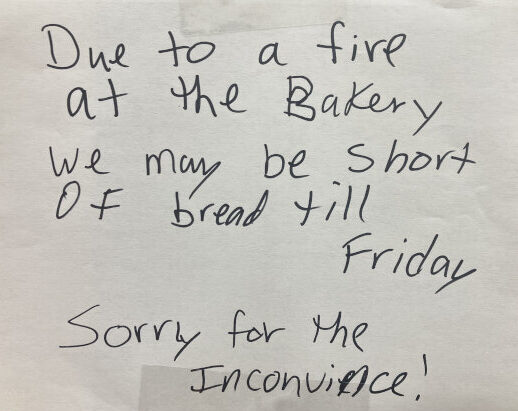 Due to a fire
at the Bakery
we may be short
Of bread till
Friday
Sorry for the
Inconvince!